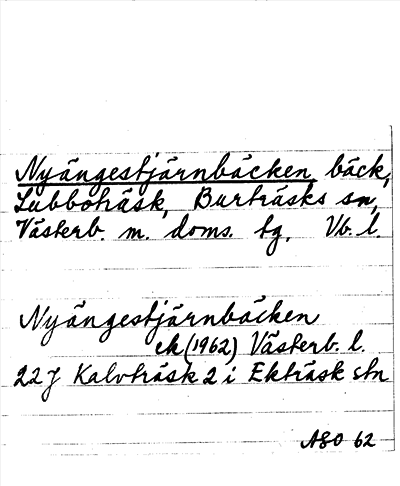 Nyängestjärnbäcken, bäck,
Lubboträsk, Burträsks sn,
Västerb. m. doms. tg. Vb. l.
Nyängestjärnbäcken
ek (1962) Västerb. l.
22J Kalvträsk 2 i Ekträsk stn
ASO 62